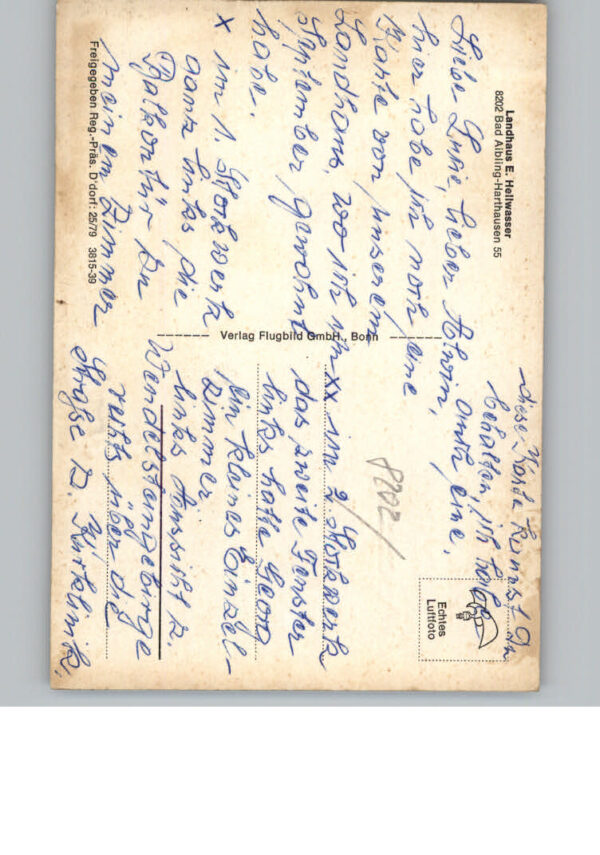 Landhaus E. Hellwasser
8202 Bad Aibling-Harthausen 55
Liebe Lusie, lieber Alwin,
hier habe ich noch eine
Karte von unserem
Landhaus, wo ich im
September gewohnt
habe.
x im 1. Stockwerk
ganz links die
Balkontür zu
meinem Zimmer
Freigegeben Reg.-Präs. D'dorf: 25/79 3815-39
Verlag Flugbild GmbH., Bonn
Diese Karte kannst Du
behalten, ich habe
auch eine.
8202/
xx im 2. Stockwerk
das zweite Fenster
links hatte Georg
ein kleines Einzel-
zimmer
links Aussicht z.
Wendelsteingebirge
rechts über die
Straße z. Kurklinik.
Echtes
Luftfoto